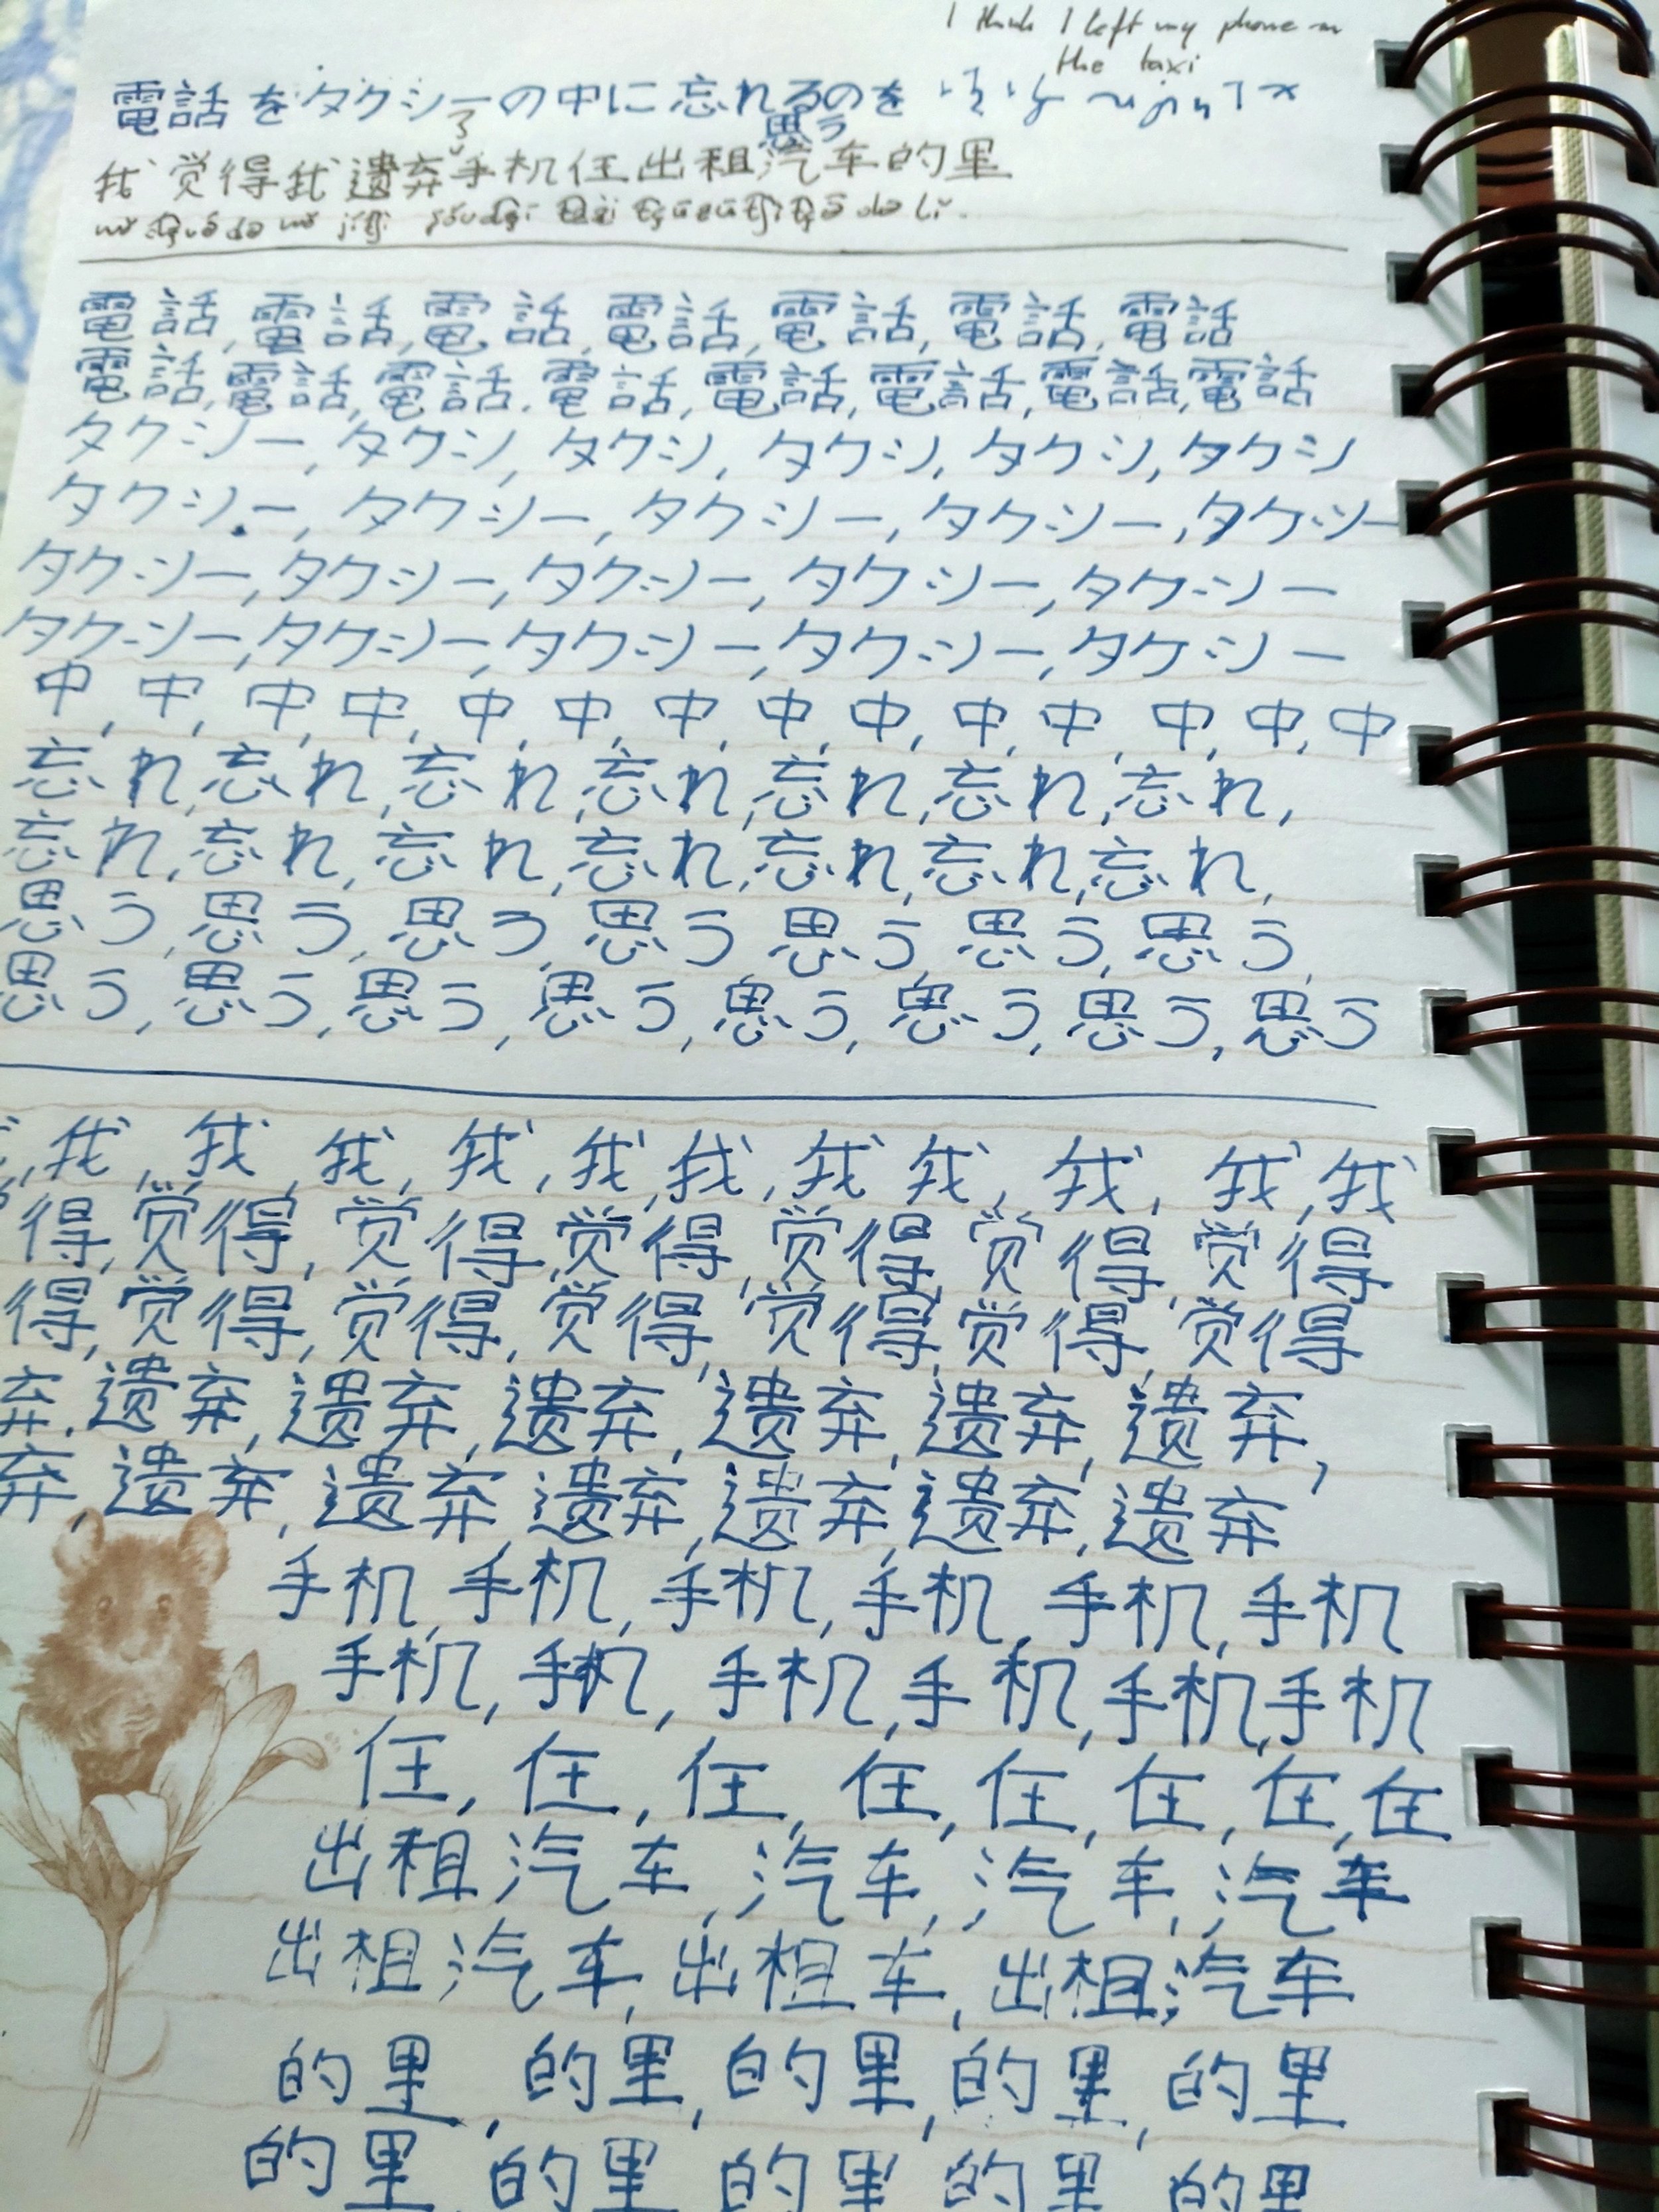 I think I left my phone in
the taxi
電話をタクシーの中に忘れるのを
思う
了
我觉得我遗弃手机住出租汽车的里
電話,電話,電話,電話,電話,電話,電話
電話,電話,電話,電話,電話,電話,電話,電話
タクシー,タクシ,タクシ,タクシ,タクシ,タクシ
タクシー,タクシー,タクシー,タクシー,タクシー
タクシー,タクシー,タクシー,タクシー,タクシー
タクシー,タクシー,タクシー,タクシー,タクシー
中,中,中,中,中,中,中,中,中,中,中,中,中,中
忘れ,忘れ,忘れ,忘れ,忘れ,忘れ,忘れ,
忘れ,忘れ,忘れ,忘れ,忘れ,忘れ,忘れ,
思う,思う,思う,思う,思う,思う,思う,
思う,思う,思う,思う,思う,思う,思う,思う
,我,我,我,我,我,我,我,我,我,我,我
得,觉得,觉得,觉得,觉得,觉得,觉得
得,觉得,觉得,觉得,觉得,觉得,觉得
弃,遗弃,遗弃,遗弃,遗弃,遗弃,遗弃,
弃,遗弃,遗弃,遗弃,遗弃,遗弃,遗弃
手机,手机,手机,手机,手机,手机
手机,手机,手机,手机,手机,手机
住,住,住,住,住,在,在,在
出租汽车,汽车,汽车,汽车
出租汽车,出租车,出租汽车
的里,的里,的里,的里,的里
的里,的里,的里,的里,的里